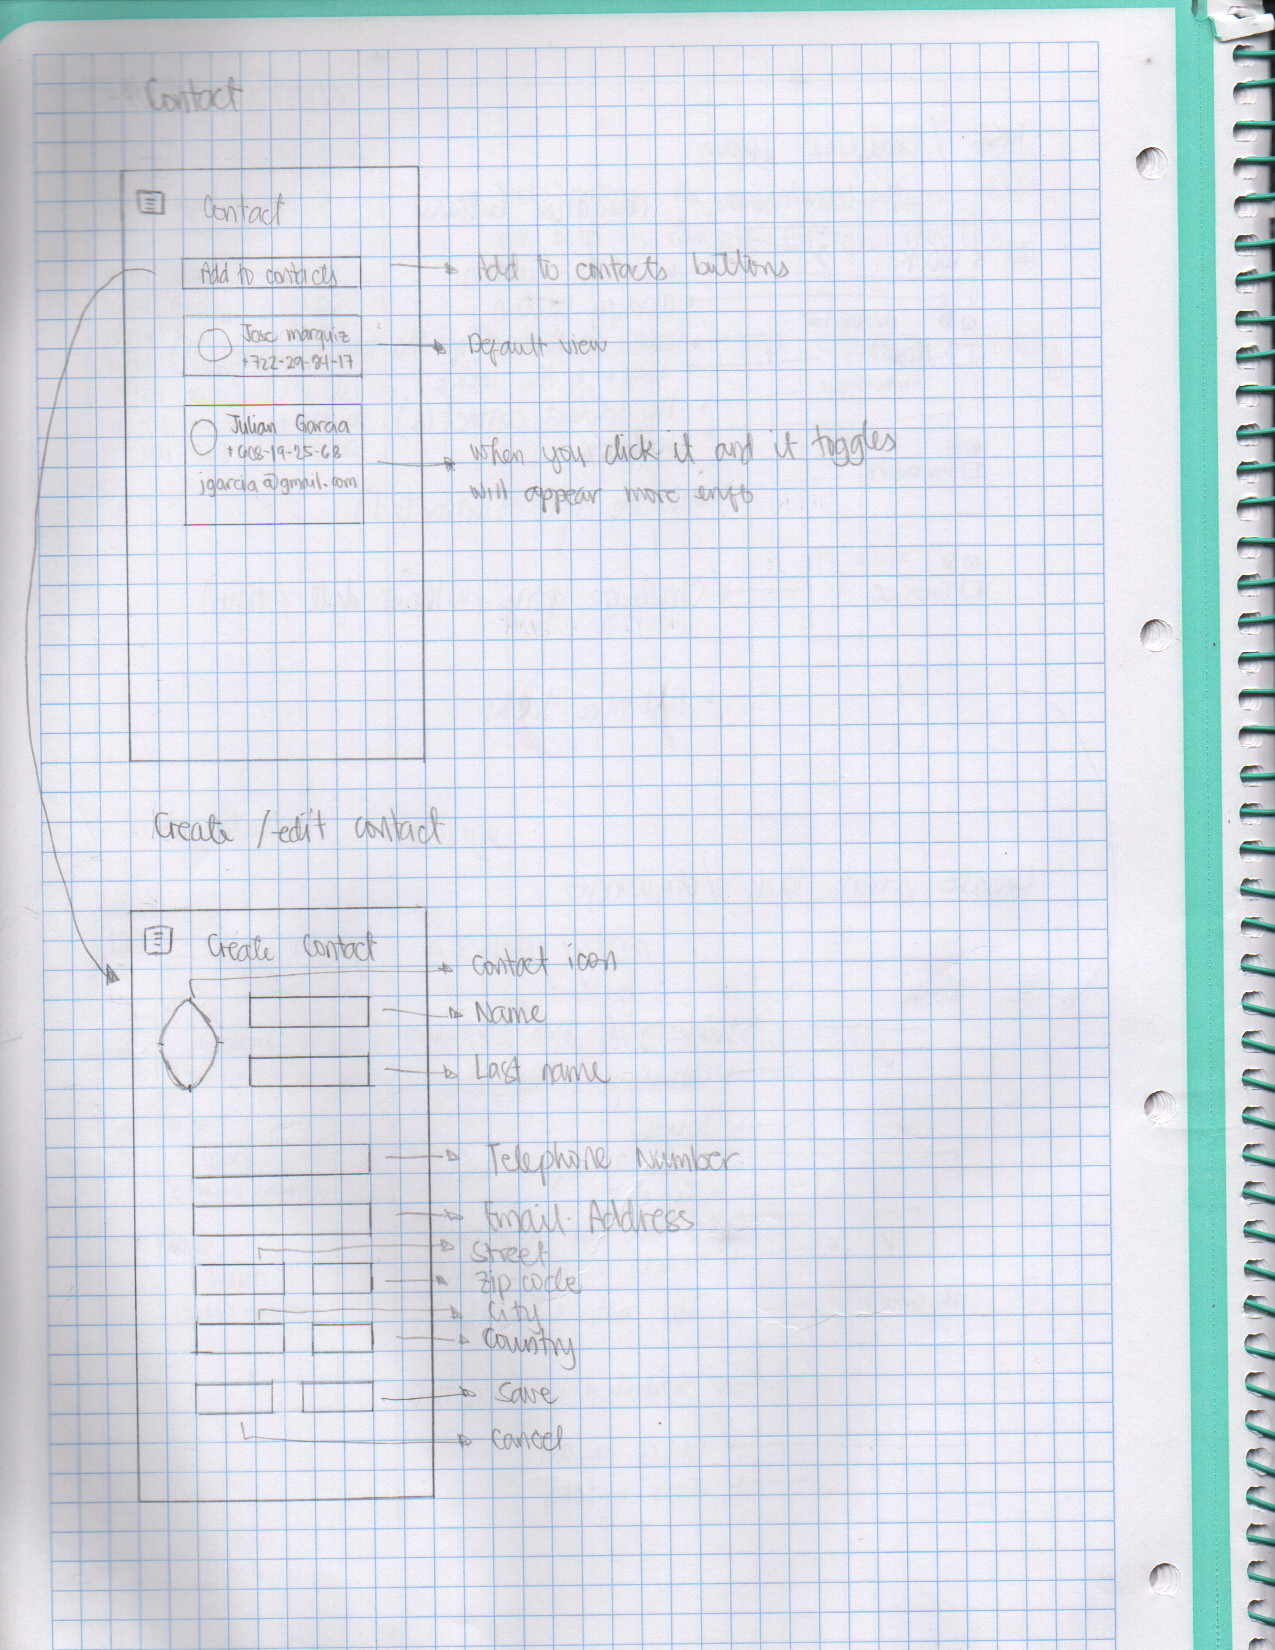 Contact
Contact
Add to contacts
Add to contacts buttons
Jose marquiz
+722-29-84-17
Default view
Julian Garcia
+608-19-25-68
jgarcia@gmail.com
When you click it and it toggles
will appear more info
Create /edit contact
Create Contact
Contact icon
Name
Last name
Telephone Number
Email Address
Street
Zip code
City
Country
Save
Cancel